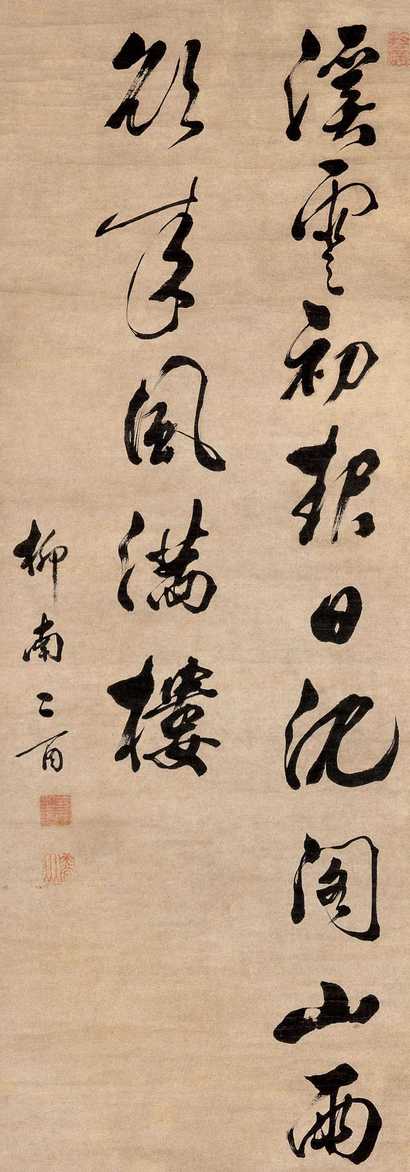 溪雲初起日沈閣山雨
欲來風滿樓
柳南